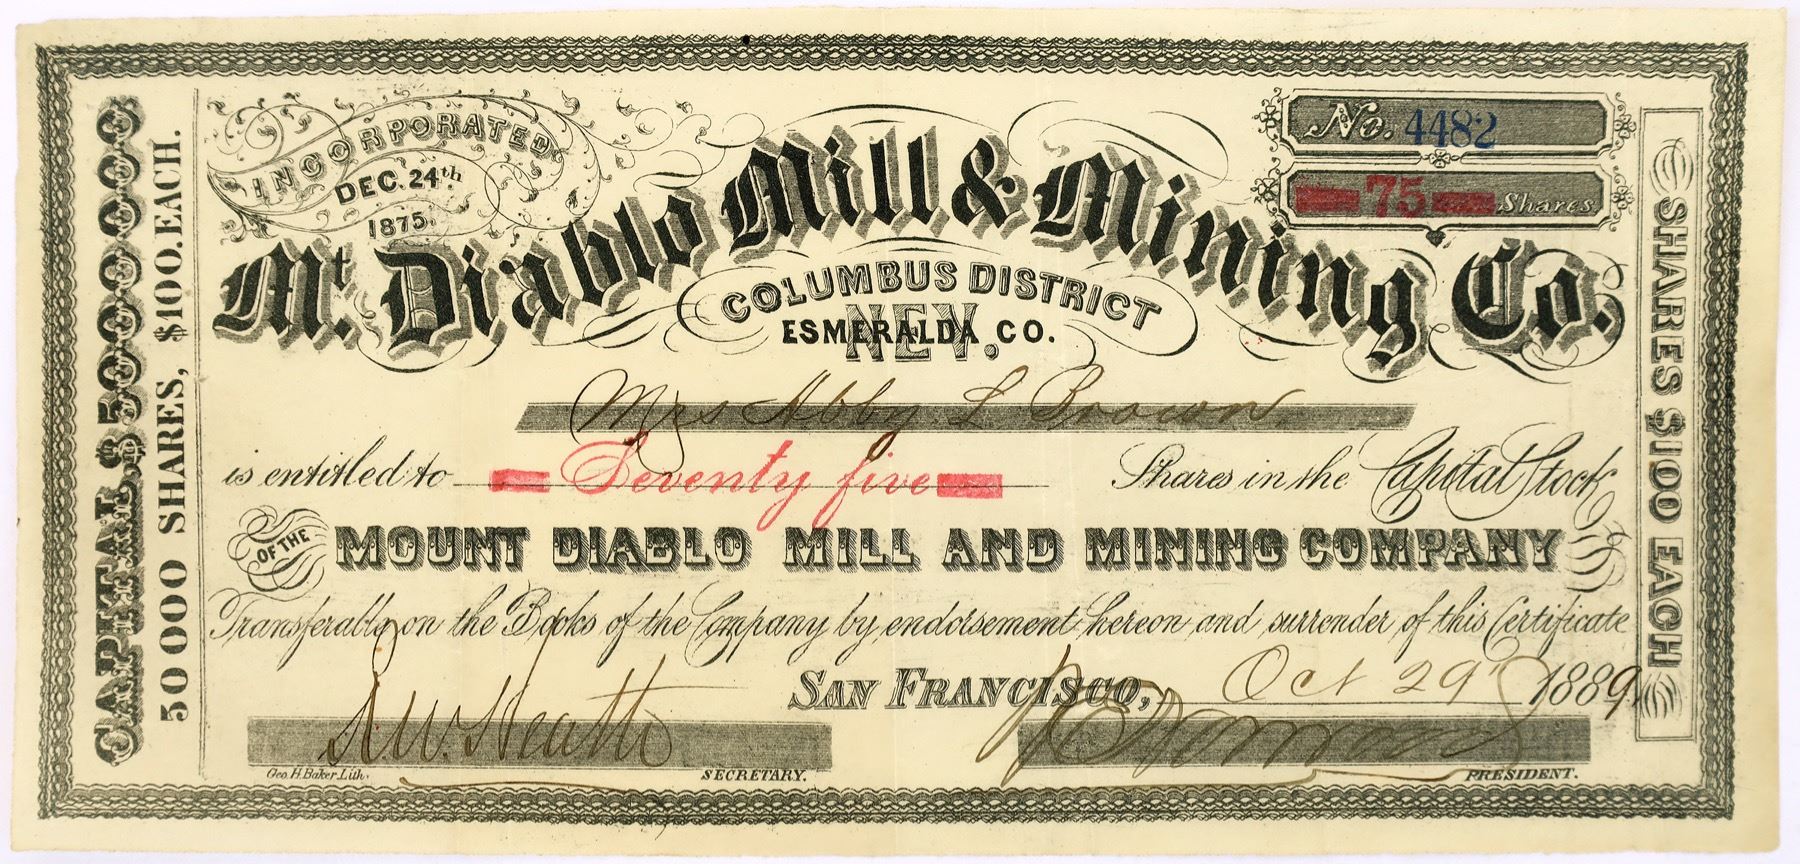 INCORPORATED
DEC. 24th
1875.
No. 4482
75 Shares
Mt. Diablo Mill & Mining Co.
COLUMBUS DISTRICT
ESMERALDA CO.
NEV.
Mrs Abby L Brown
is entitled to Seventy five Shares in the Capital Stock
OF THE MOUNT DIABLO MILL AND MINING COMPANY
Transferable on the Books of the Company by endorsement hereon and surrender of this Certificate
SAN FRANCISCO, Oct 29 1889
Geo. H. Baker Lith. SECRETARY. PRESIDENT.
CAPITAL $5000000
50000 SHARES, $100. EACH.
SHARES $100 EACH